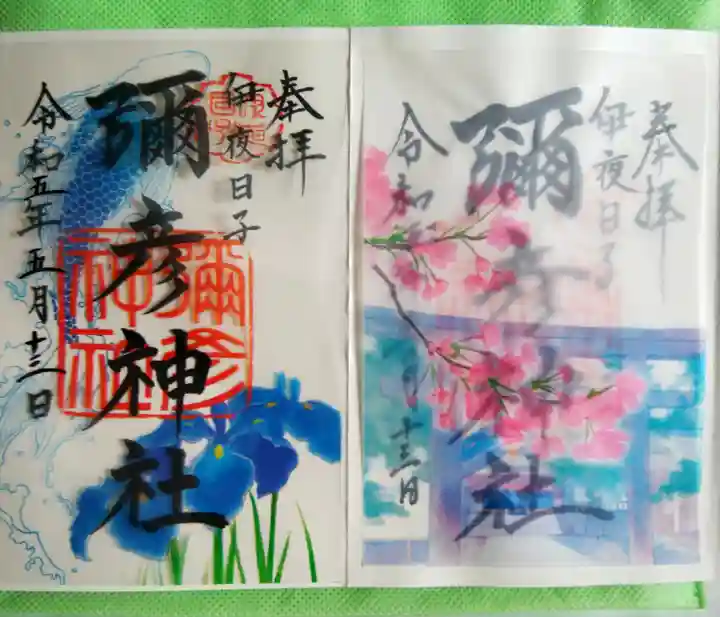 奉拝
伊夜日子
彌彦神社
令和五年五月十三日
彌彦
神社
奉拝
伊夜日子
彌彦神社
令和
月十三日